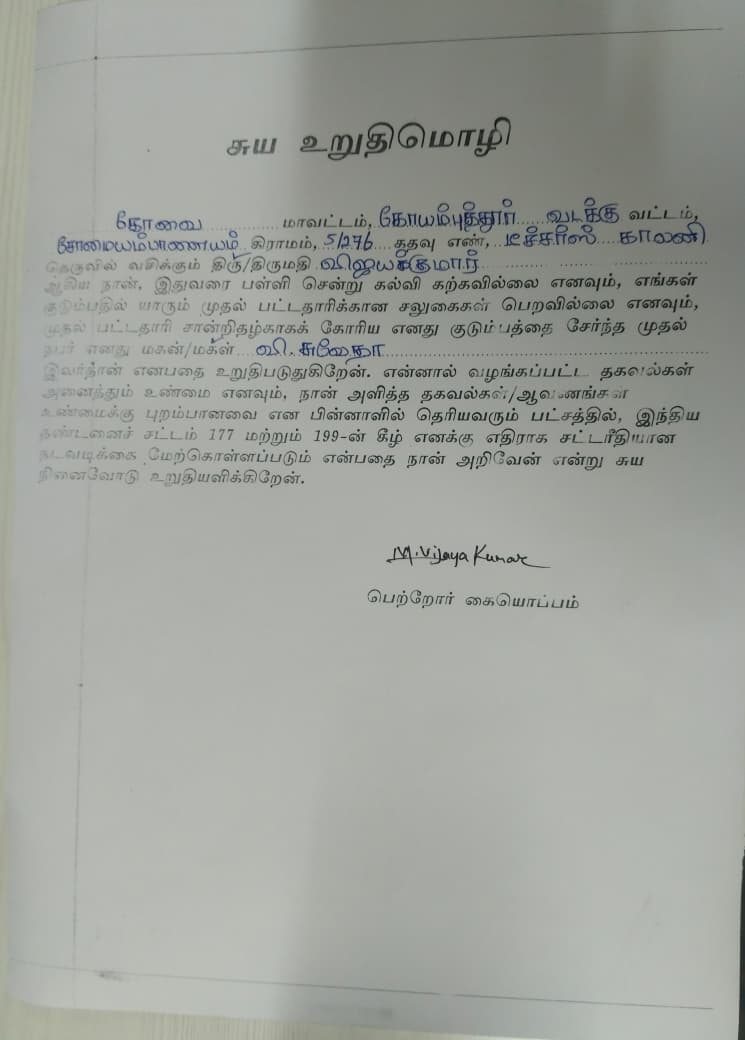 சுய உறுதிமொழி
கோவை மாவட்டம், கோயம்புத்தூர் வடக்கு வட்டம்,
சோமையம்பாளையம் கிராமம், 5/276 கதவு எண், டீச்சர்ஸ் காலனி
தெருவில் வசிக்கும் திரு/திருமதி விஜயக்குமார்
ஆகிய நான், இதுவரை பள்ளி சென்று கல்வி கற்கவில்லை எனவும், எங்கள்
குடும்பதில் யாரும் முதல் பட்டதாரிக்கான சலுகைகள் பெறவில்லை எனவும்,
முதல் பட்டதாரி சான்றிதழ்காகக் கோரிய எனது குடும்பத்தை சேர்ந்த முதல்
நபர் எனது மகன்/மகள் வி.சுவேதா
இவர்தான் என்பதை உறுதிபடுதுகிறேன். என்னால் வழங்கப்பட்ட தகவல்கள்
அனைத்தும் உண்மை எனவும், நான் அளித்த தகவல்கள்/ஆவணங்கள்
உண்மைக்கு புறம்பானவை என பின்னாளில் தெரியவரும் பட்சத்தில், இந்திய
தண்டனைச் சட்டம் 177 மற்றும் 199-ன் கீழ் எனக்கு எதிராக சட்டரீதியான
நடவடிக்கை மேற்கொள்ளப்படும் என்பதை நான் அறிவேன் என்று சுய
நினைவோடு உறுதியளிக்கிறேன்.
M.Vijaya Kumar
பெற்றோர் கையொப்பம்